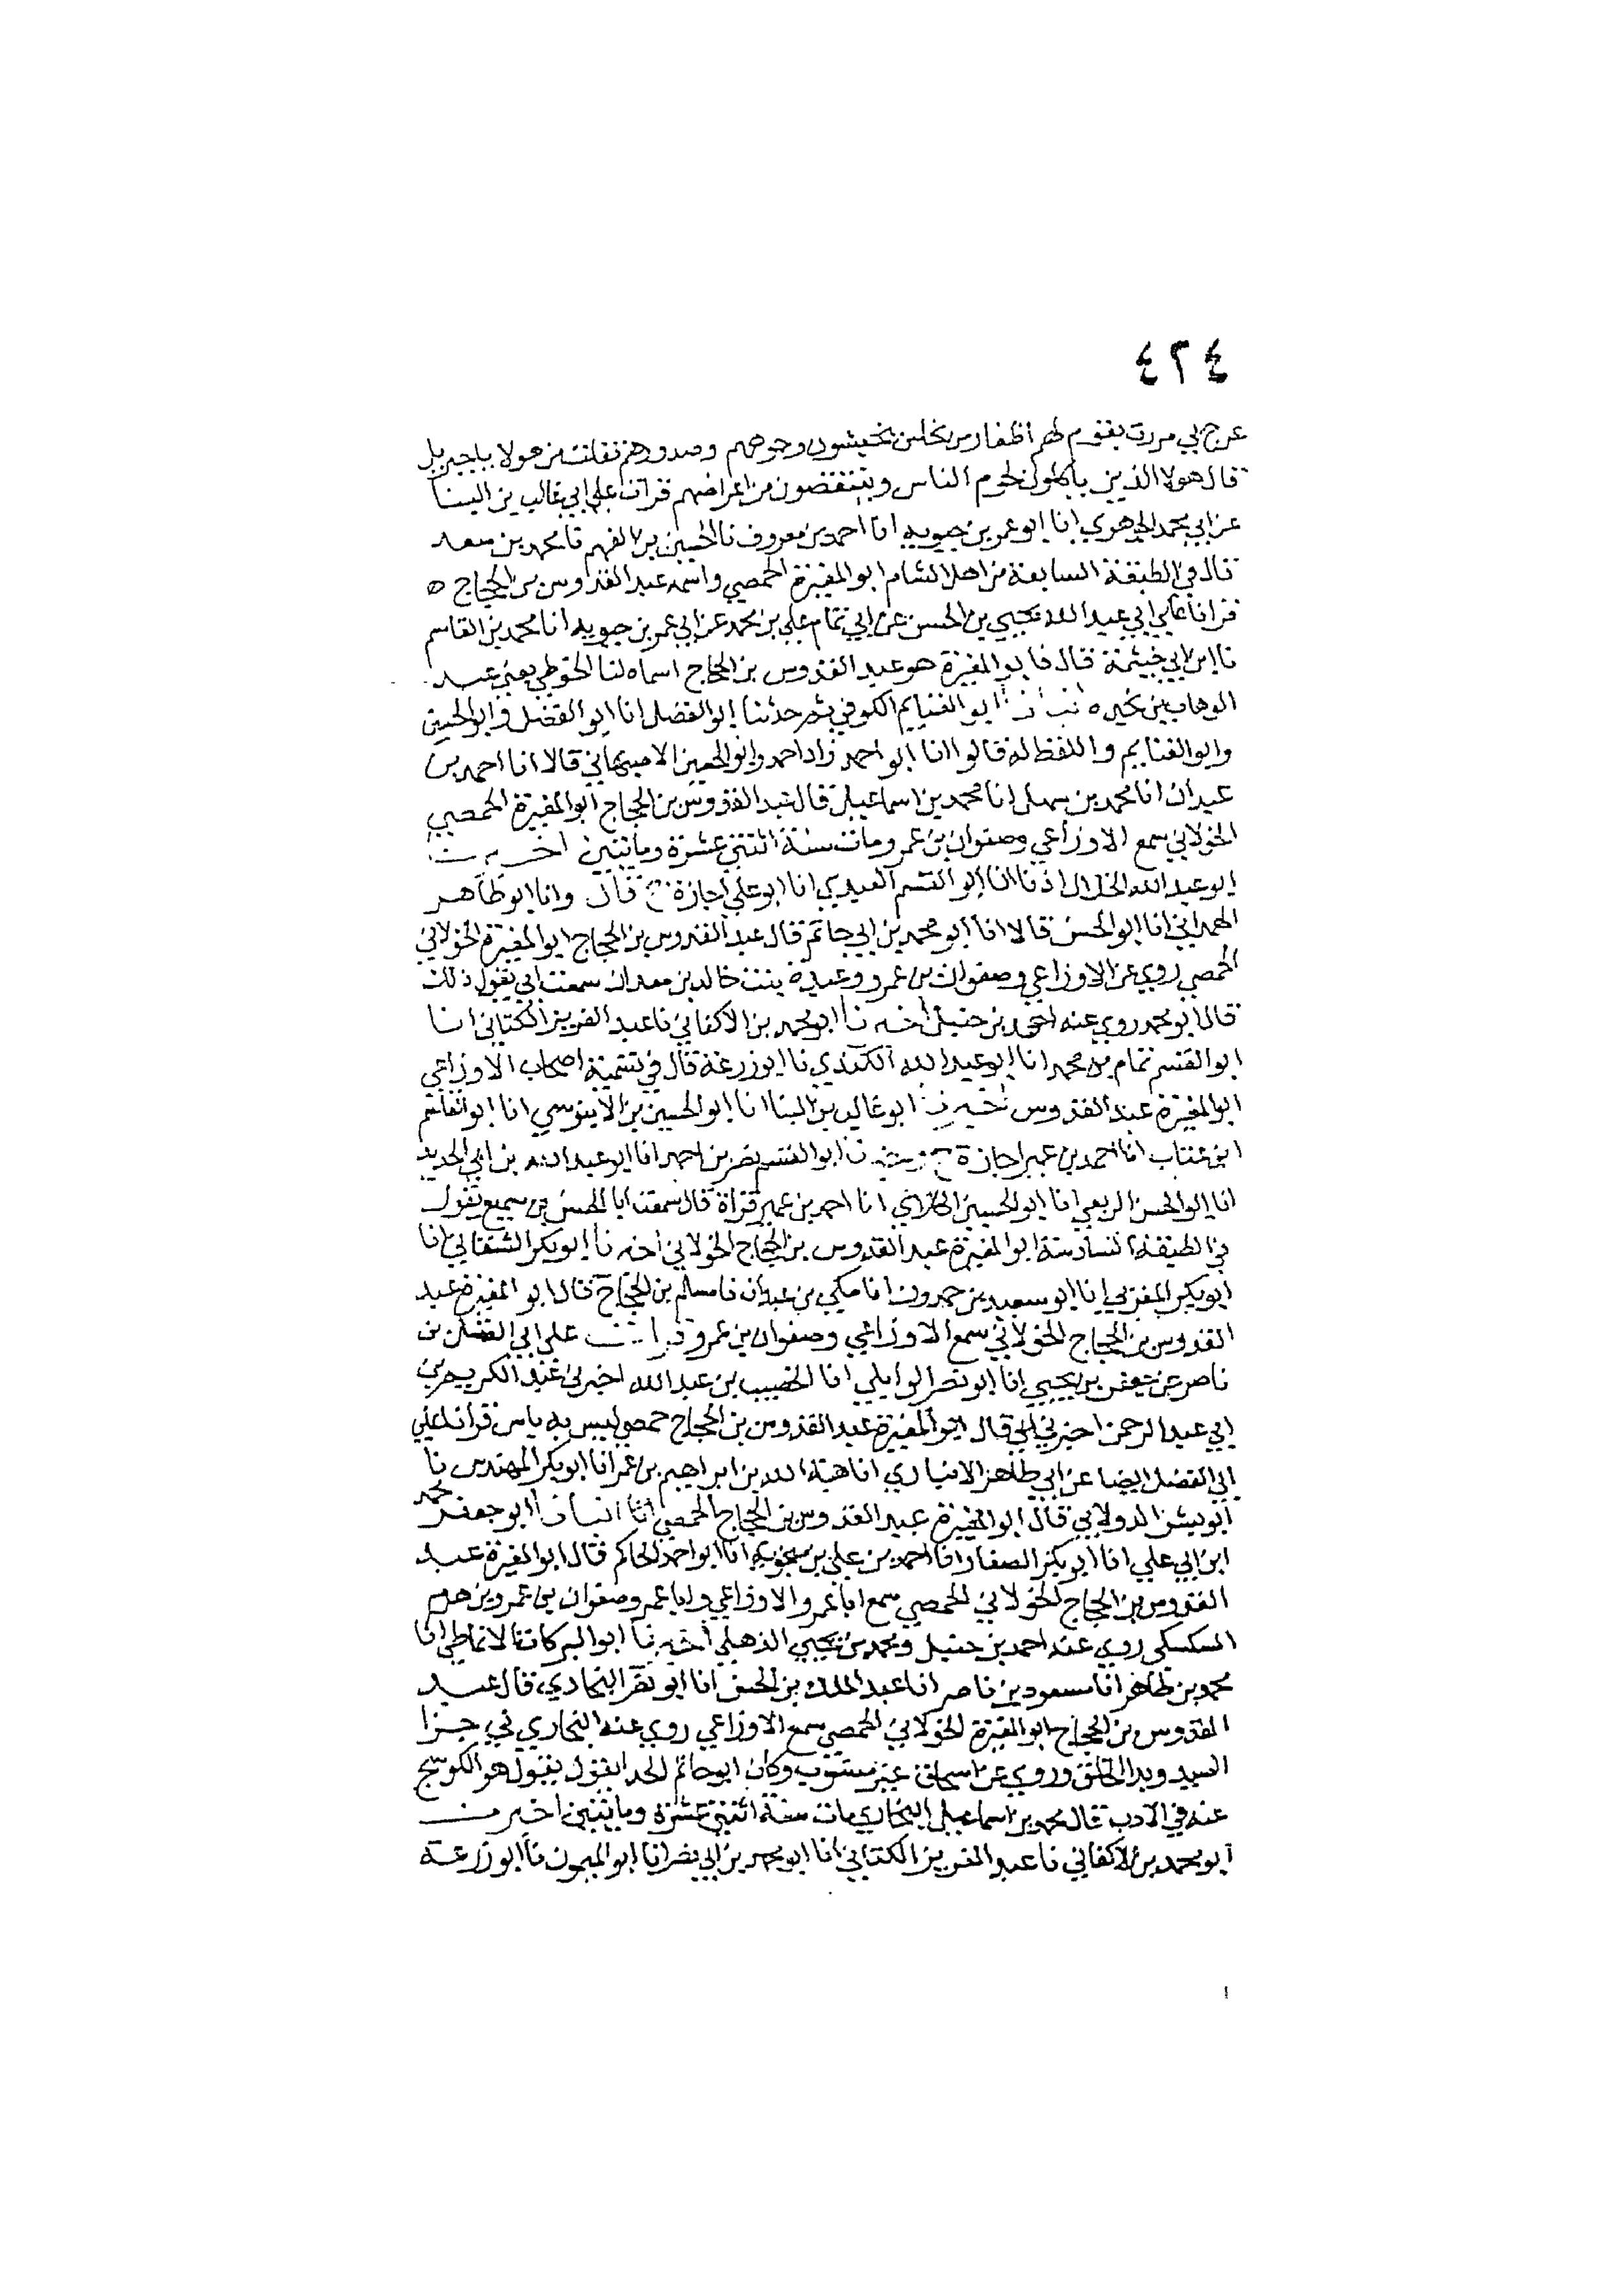 ٤٢٤
عرج بي مررت بقوم لهم اظفار من نحاس يخمشون وجوههم وصدورهم فقلت من هولا يا جبريل
قال هولا الذين ياكلون لحوم الناس وينتقصون من اعراضهم قرات على ابي غالب بن البنا
عن ابي محمد الجوهري انا ابو عمر بن حيويه انا احمد بن معروف نا الحسين بن الفهم نا محمد بن سعد
قال في الطبقة السابعة من اهل الشام ابو المغيرة الحمصي واسمه عبد القدوس بن الحجاج ه
قرانا على ابي عبد الله يحيى بن الحسن عن ابي تمام علي بن محمد عن ابي عمر بن حيويه انا محمد بن القاسم
نا ابن ابي خيثمة قال نا ابو المغيرة هو عبد القدوس بن الحجاج اسماه لنا الحوطي يعني عبد
الوهاب بن نجيره انبانا ابو الغنايم الكوفي ثم حدثنا ابو الفضل انا ابو الفضل وابو الحسين
وابو الغنايم واللفظ له قالوا انا ابو احمد زاد احمد وابو الحسين الاصبهاني قالا انا احمد بن
عبدان انا محمد بن سهل انا محمد بن اسماعيل قال عبد القدوس بن الحجاج ابو المغيرة الحمصي
الخولاني سمع الاوزاعي وصفوان بن عمر ومات سنة اثنتي عشرة ومايتين اخبرنا
ابو عبد الله الخلال اذنا انا ابو القسم العبدي انا ابو علي اجازة ح قال وانا ابو طاهر
الهمداني انا ابو الحسن قالا انا ابو محمد بن ابي حاتم قال عبد القدوس بن الحجاج ابو المغيرة الخولاني
الحمصي روي عن الاوزاعي وصفوان بن عمرو وعبدة بنت خالد بن معدان سمعت ابي يقول ذلك
قال ابو محمد روي عنه احمد بن حنبل اخبرنا ابو محمد بن الاكفاني نا عبد العزيز الكتاني انا
ابو القسم تمام بن محمد انا ابو عبد الله الكندي نا ابو زرعة قال في تسمية اصحاب الاوزاعي
ابو المغيرة عبد القدوس اخبرنا ابو غالب بن البنا انا ابو الحسين بن الابنوسي انا ابو القاسم
ابن عتاب انا احمد بن عمير اجازة ح واخبرنا ابو القسم نصر بن احمد انا ابو عبد الله بن ابي الحديد
انا ابو الحسن الربعي انا ابو الحسين الكلابي انا احمد بن عمير قراة قال سمعت ابا الحسن بن سميع يقول
في الطبقة السادسة ابو المغيرة عبد القدوس بن الحجاج الخولاني اخبرنا ابو بكر الشقاني انا
ابو بكر المغربي انا ابو سعيد بن حمدون انا مكي بن عبدان نا مسلم بن الحجاج قال ابو المغيرة عبد
القدوس بن الحجاج الخولاني سمع الاوزاعي وصفوان بن عمرو قرات على ابي الفضل بن
ناصر عن جعفر بن يحيى انا ابو نصر الوايلي انا الخصيب بن عبد الله اخبرني عبد الكريم بن
ابي عبد الرحمن اخبرني ابي قال ابو المغيرة عبد القدوس بن الحجاج حمصي ليس به باس قرانا على
ابي الفضل ايضا عن ابي طاهر الانباري انا هبة الله بن ابراهيم بن عمر انا ابو بكر المهندس نا
ابو بشر الدولابي قال ابو المغيرة عبد القدوس بن الحجاج الحمصي انا انبانا ابو جعفر محمد
ابن ابي علي انا ابو بكر الصفار انا احمد بن علي بن منجويه انا ابو احمد الحاكم قال ابو المغيرة عبد
القدوس بن الحجاج الخولاني الحمصي سمع ابا عمرو الاوزاعي وابا عمرو صفوان بن عمرو بن هرم
السكسكي روي عنه احمد بن حنبل ومحمد بن يحيى الذهلي اخبرنا ابو البركات الانماطي انا
محمد بن طاهر انا مسعود بن ناصر انا عبد الملك بن الحسن انا ابو نصر البخاري قال عبد
القدوس بن الحجاج ابو المغيرة الخولاني الحمصي سمع الاوزاعي روي عنه البخاري في جزا
الصيد وبدا الخلق وروي عن اسحاق غير منسوب وكان ابو حاتم الحدا يقول يقول هو الكوسج
عنه في الادب قال محمد بن اسماعيل البخاري مات سنة اثنتي عشرة ومايتين اخبرنا
ابو محمد بن الاكفاني نا عبد العزيز الكتاني انا ابو محمد بن ابي نصر انا ابو الميمون نا ابو زرعة